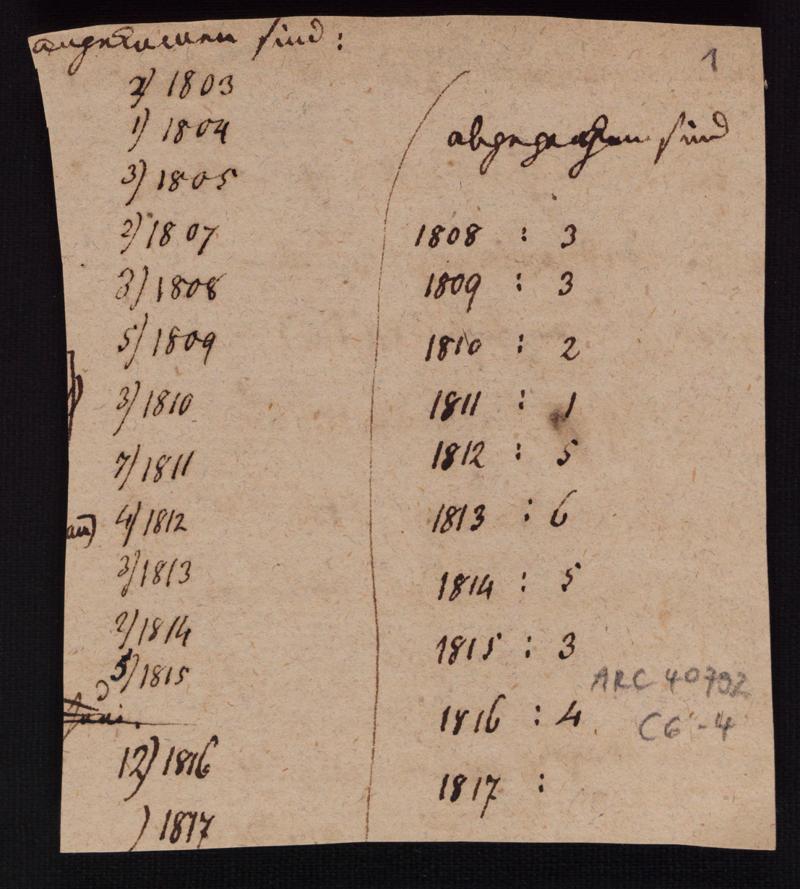 angekommen sind:
2) 1803
1) 1804
3) 1805
2) 1807
3) 1808
5) 1809
3) 1810
7) 1811
4) 1812
3) 1813
2) 1814
5) 1815
12) 1816
) 1817
1
abgegangen sind
1808 : 3
1809 : 3
1810 : 2
1811 : 1
1812 : 5
1813 : 6
1814 : 5
1815 : 3
1816 : 4
1817 :
ARC 40792
C6-4